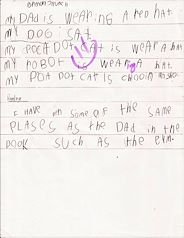 my DaD is weaRiNG A reD hat.
my DOG CAT
my POLCA DOT CAT is weaR A hat
my ROBOT is weaRinG A hat.
my POT DOT CAT is
I HAVE iN SOMe OF the SAMe
PLASes AS the DAD iN the
BOOK SUCH AS the